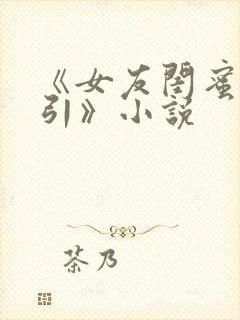 《女友閨蜜
引》小說
茶乃